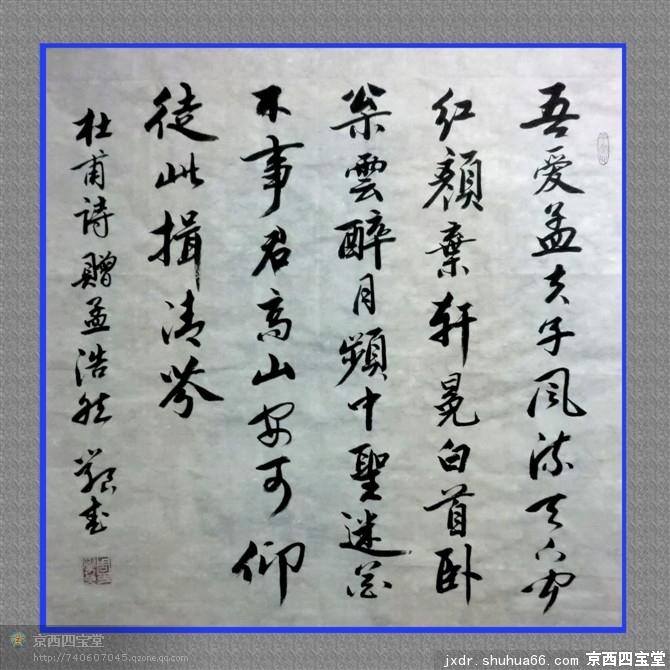 吾爱孟夫子风流天下闻
红顔棄轩冕白首卧
枀雲醉月頻中聖迷花
不事君高山安可仰
徒此揖清芬
杜甫诗赠孟浩然
京西四宝堂
http://740607045.qzone.qq.com
jxdr.shuhua66.com 京西四宝堂